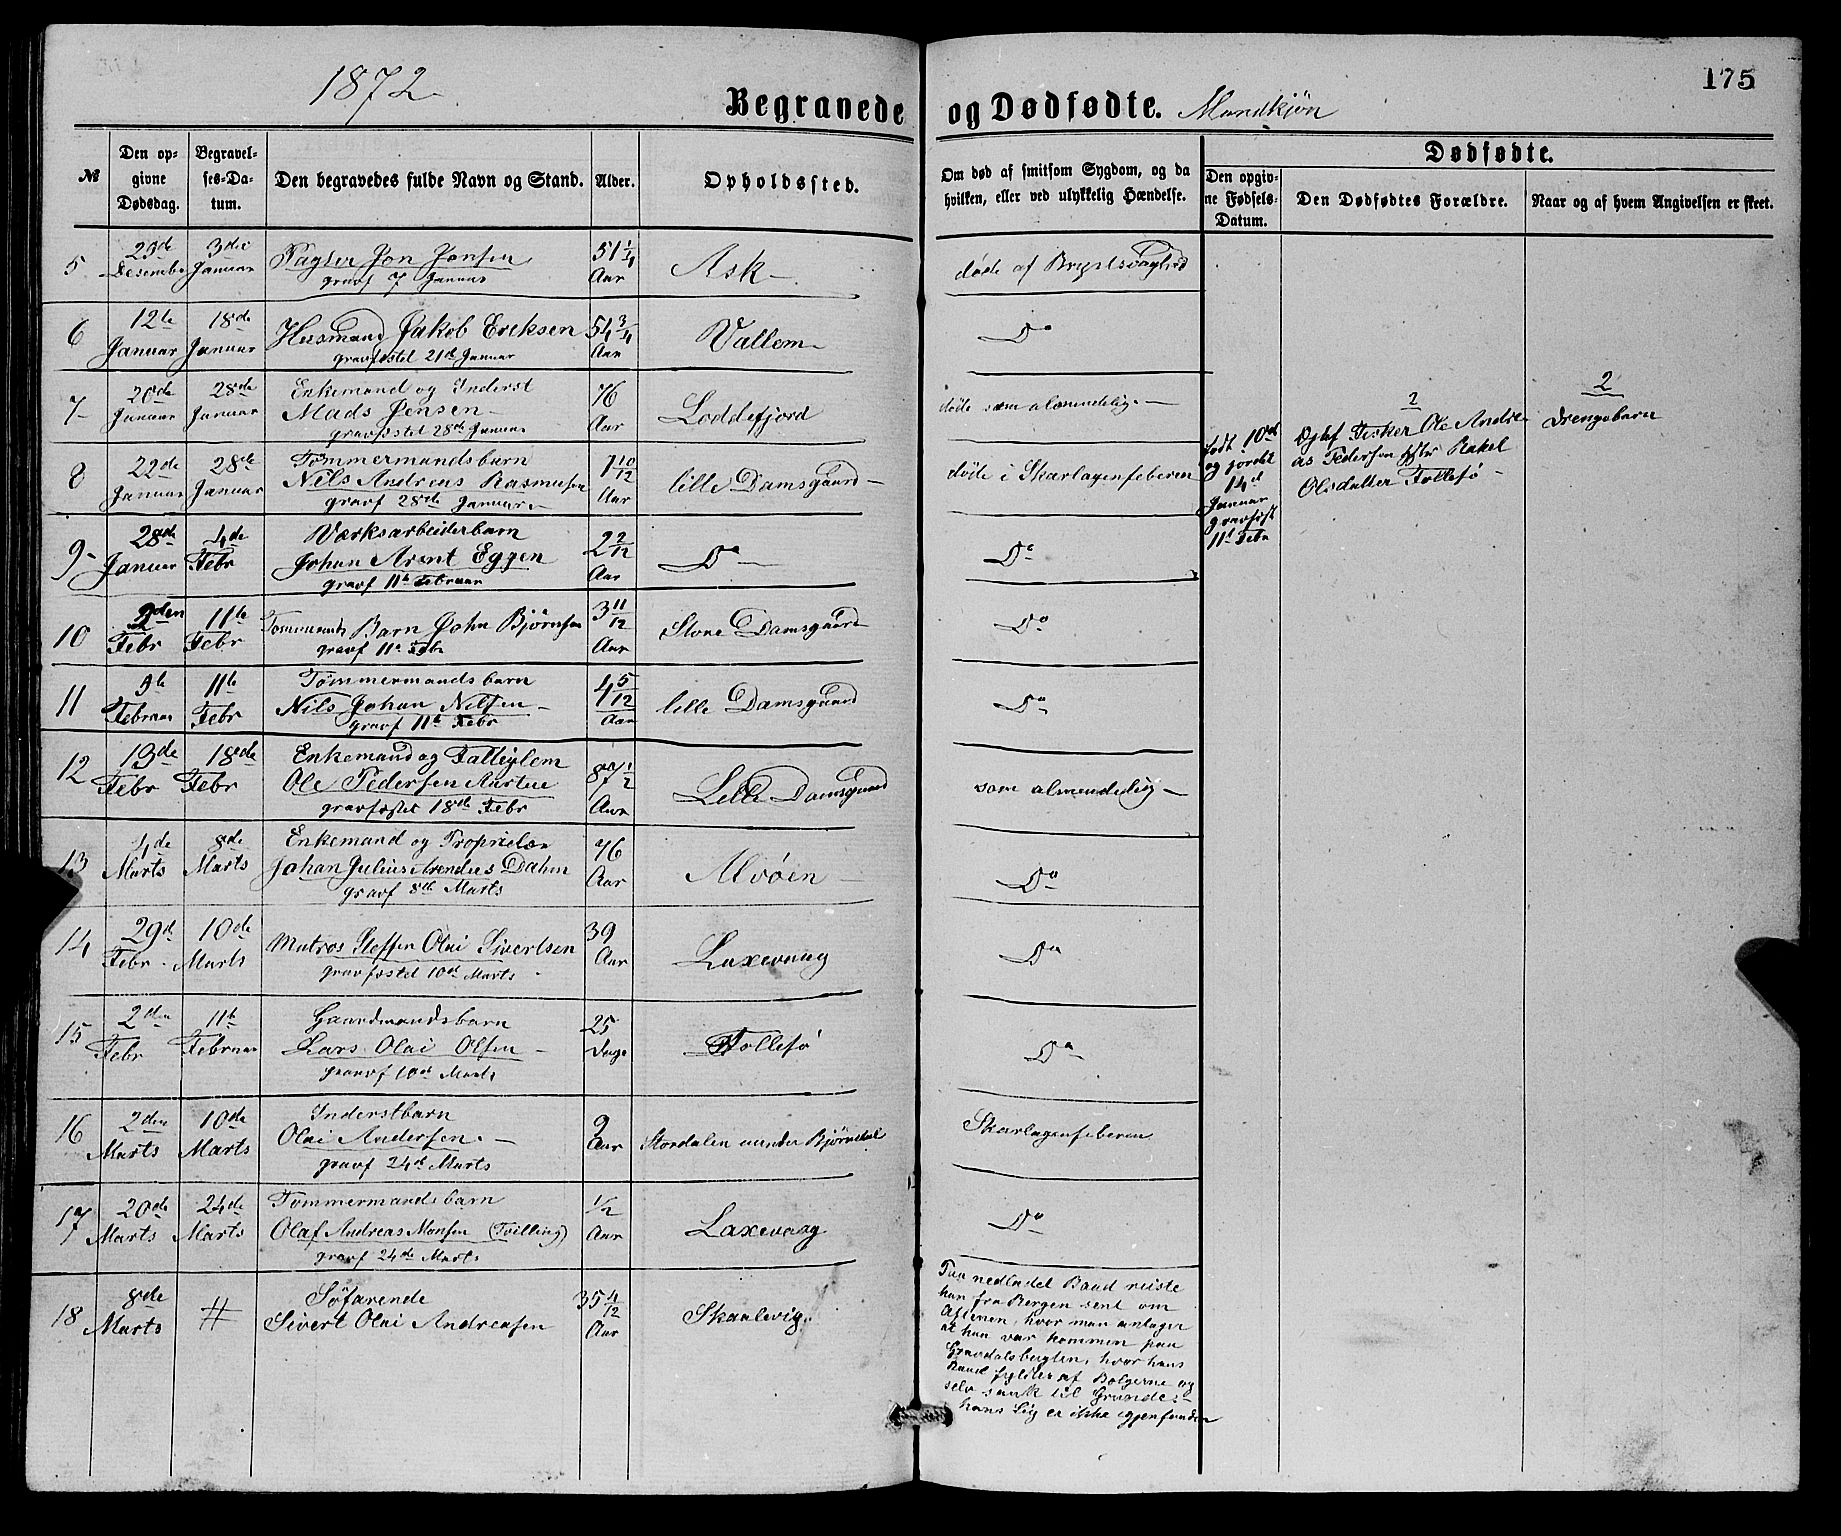 1872
175
Begravede og Dødfødte. Mandkjøn
№
Den op-
givne
Dødsdag.
Begravel-
ses-Da-
tum.
Den begravedes fulde Navn og Stand.
Alder.
Opholdssted.
Om død af smitsom Sygdom, og da
hvilken, eller ved ulykkelig Hændelse.
Dødfødte.
Den opgiv-
ne Fødsels-
Datum.
Den Dødfødtes Forældre.
Naar og af hvem Angivelsen er skeet.
5
Desember
3die
Januar
Jon Jonsen
gravf 7 Januar
51 1/4
Aar
Ask
døde af
6
12te
Januar
18de
Januar
Husmand Jakob Eriksen
gravfæstet 21de Januar
54 3/4
Aar
Vallem
Do
7
20de
Januar
28de
Januar
Enkemand og Inderst
Mads Jensen
gravfæstet 28de Januar
76
Aar
Loddefjord
døde som almindelig
8
22de
Januar
28de
Januar
Tømmermandsbarn
Nils Andreas Rasmusen
gravf 28de Januar
1 10/12
Aar
lille Damsgaard
døde i Skarlagensfeberen
født 10de
og jordet
14d
Januar
gravfæst
11t Febr
2
Fisker Ole Andre
as Pedersen Rakel
Olsdatter Follesø
2
Drengebarn
9
28de
Januar
4de
Febr
Værksarbeiderbarn
Johan Arent Eggen
gravf 11te Februar
2 2/12
Aar
Do
Do
10
2den
Febr
11te
Febr
Tømermands Barn John Bjørnsen
gravf 11te Febr
3 11/12
Aar
Store Damsgaard
Do
11
9de
Februar
11te
Febr
Tømmermandsbarn
Nils Johan Nilsen
gravf 11te Febr
4 5/12
Aar
lille Damsgaard
Do
12
13de
Febr
18de
Febr
Enkemand og Fattiglem
Ole Pedersen
gravfæstet 18de Febr
87 1/2
Aar
Lille Damsgaard
som almendelig
13
4de
Marts
8de
Marts
Enkemand og Proprietær
Johan Julius Arendres Dahm
gravf 8de Marts
76
Aar
Alvøen
Do
14
29d
Febr
10de
Marts
Matros Steffen Olai Sivertsen
gravfæstet 10de Marts
39
Aar
Laxevaag
Do
15
2den
Febr
11te
Februar
Gaardmandsbarn
Lars Olai Olsen
gravf 10de Marts
25
Dage
Follesø
Do
16
2den
Marts
10de
Marts
Inderstbarn
Olai Andersen
gravf 24de Marts
9
Aar
Stordalen under Bjørndal
Skarlagensfeberen
17
20de
Marts
24de
Marts
Tømmermandsbarn
Olaf Andreas Monsen (Tvilling)
gravf 24de Marts
1/2
Aar
Laxevaag
Do
18
8de
Marts
#
Søfarende
Sivert Olai Andreasen
35 4/12
Aar
Skaalevig
Paa nedladet Baad reiste
han fra Bergen sent om
Aftenen, hvor man antager
at han var kommen paa
Gravdalsbugten, hvor hans
Baad fyldtes af Bølgerne og
selv sank til Grunde
hans Lig er ikke igjenfunden